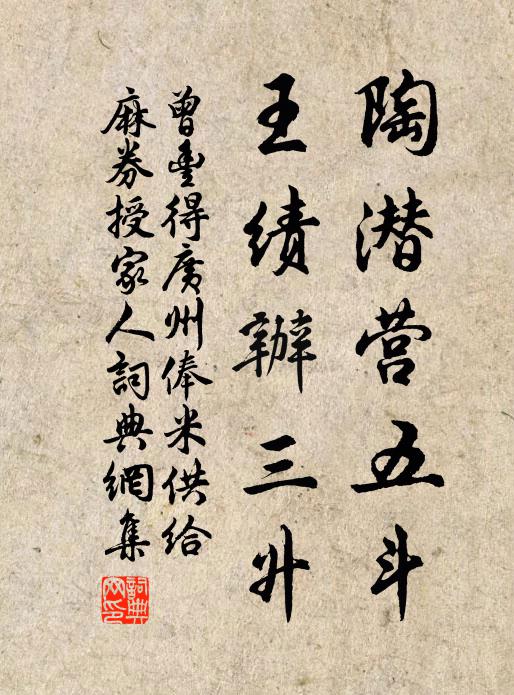 陶潜营五斗
王绩辦三升
曾豊得廣州俸米供给
麻券授家人詞典網集
詞典网印